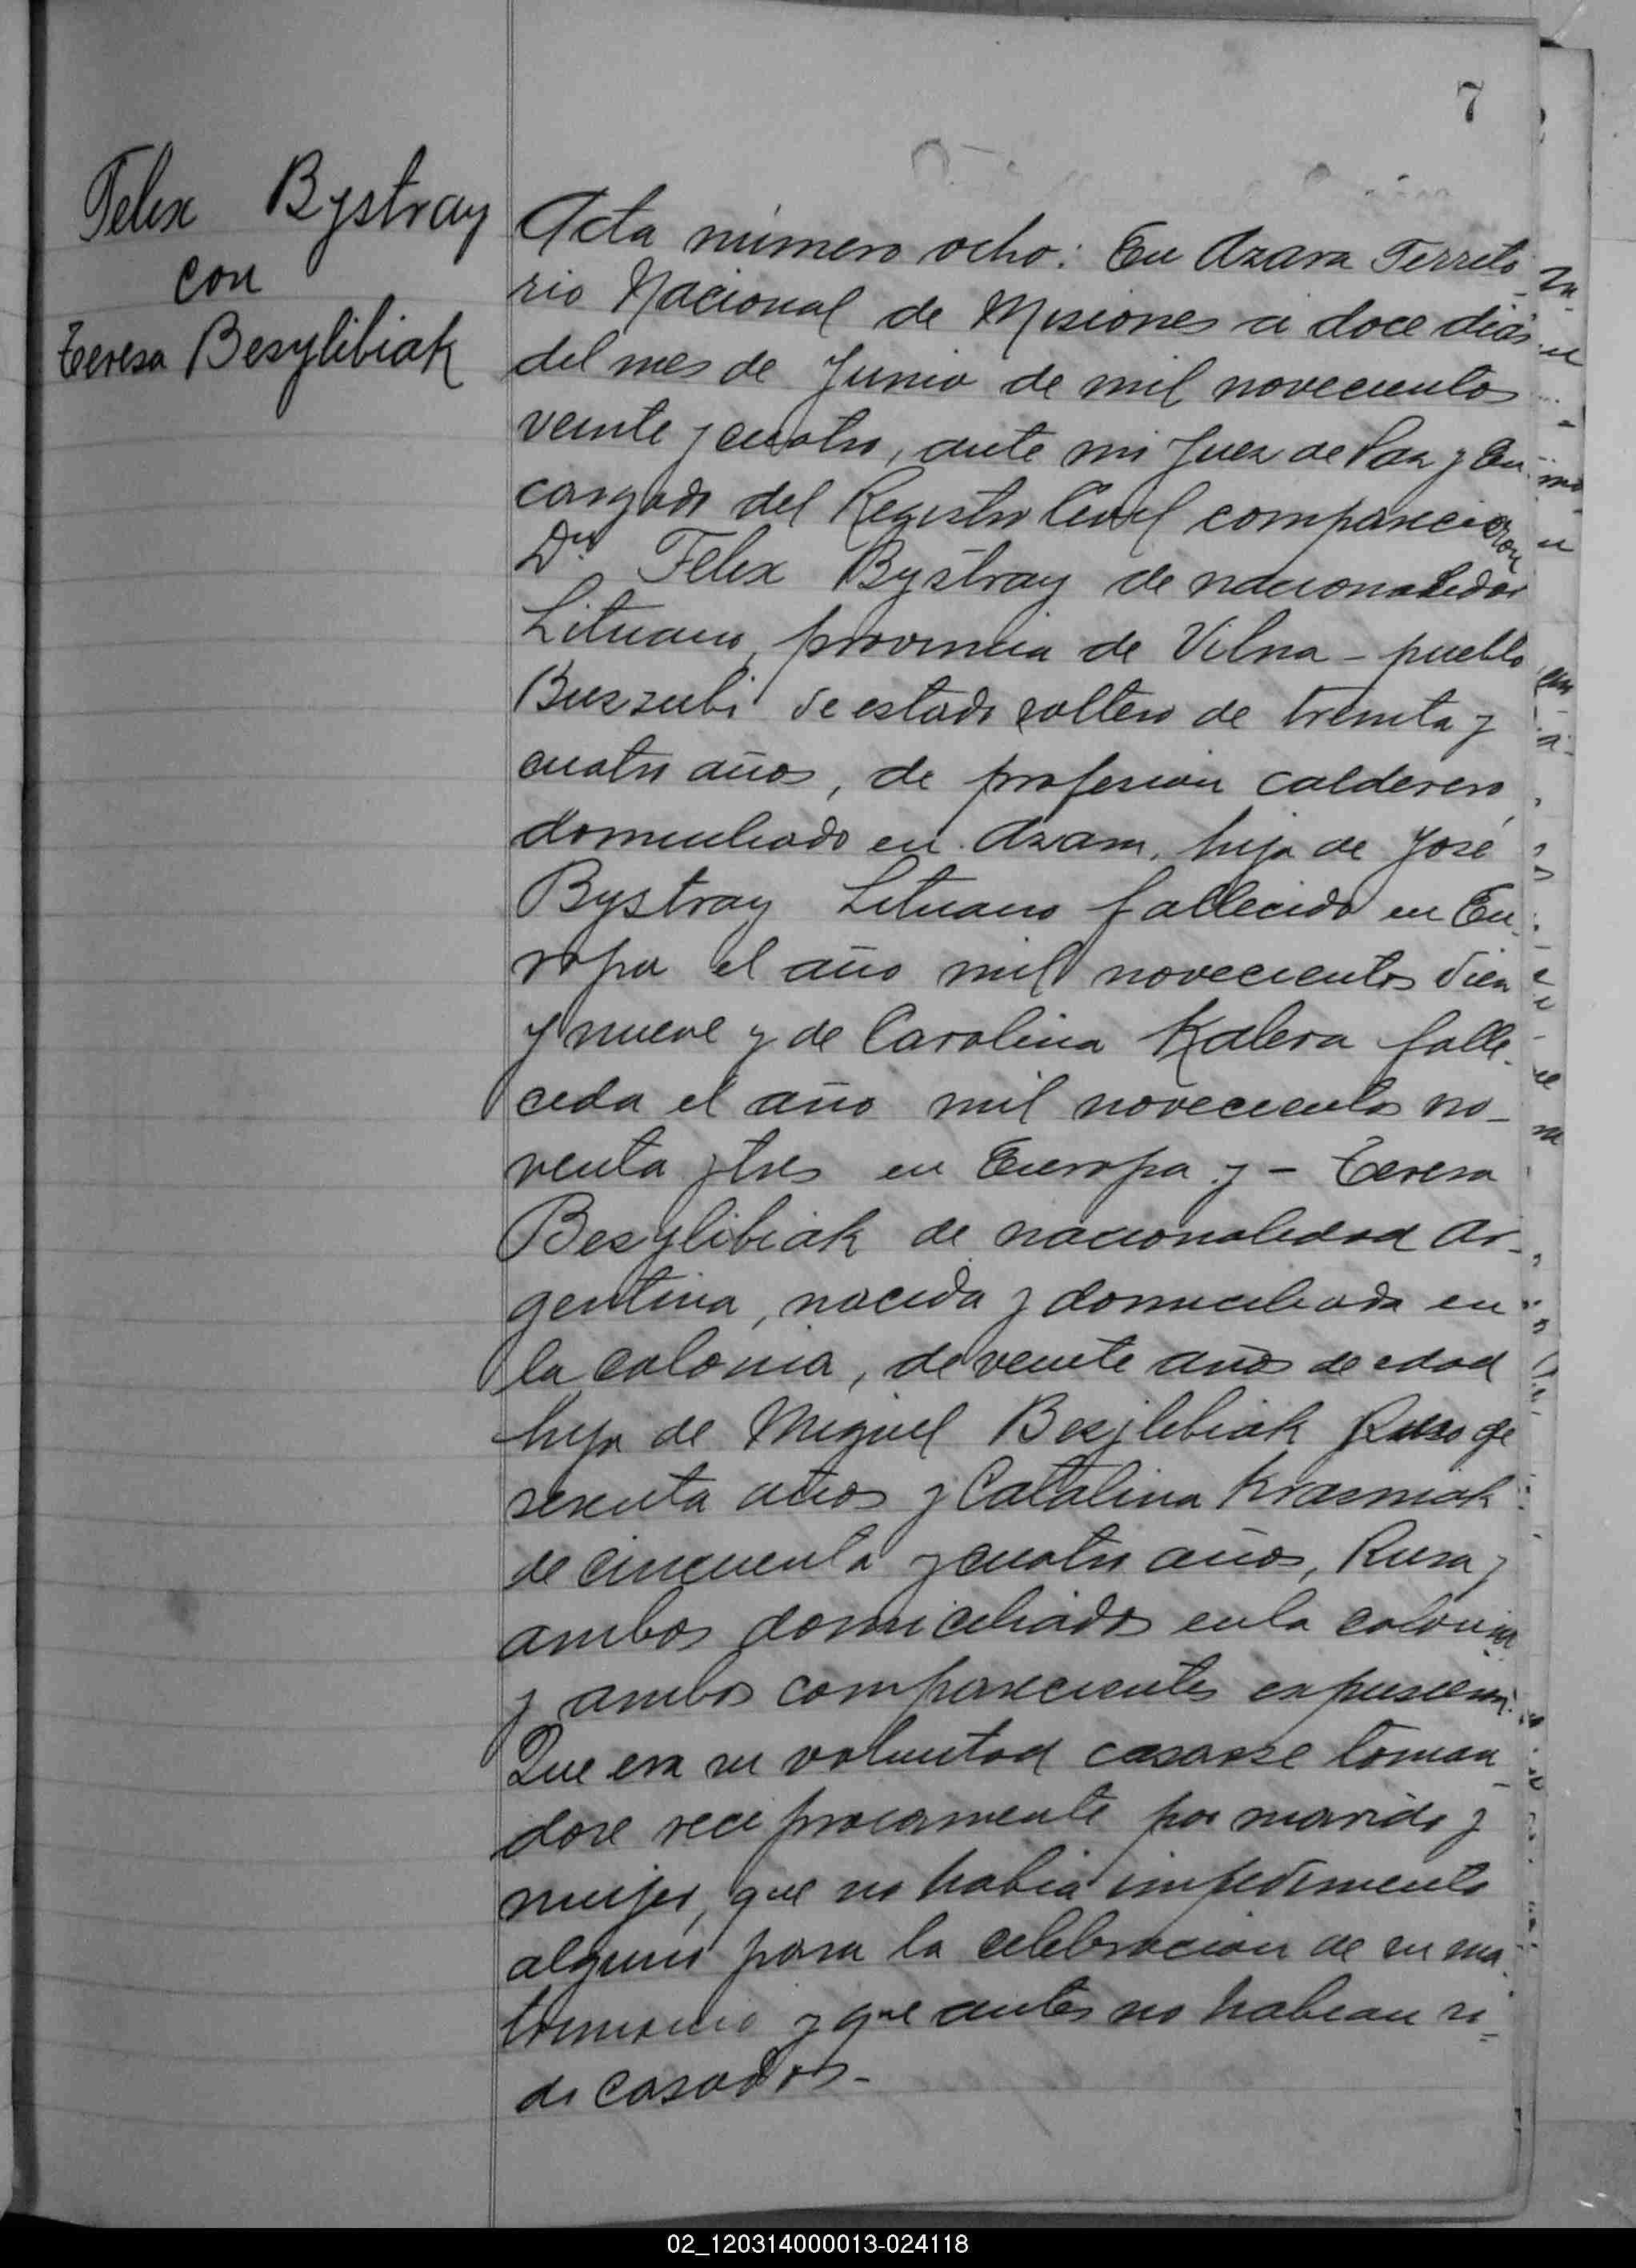 7
Felix Bystray
con
Teresa Besylibiak
Acta número ocho: En Azara Territo-
rio Nacional de Misiones a doce dias
del mes de Junio de mil novecientos
veinte y cuatro, ante mi Juez de Paz y En
cargado del Registro Civil comparecieron
Dn Felix Bystray de nacionalidad
Lituano, provincia de Vilna - pueblo
de estado soltero de treinta y
cuatro años, de profesion calderero,
domiciliado en Azara, hijo de José
Bystray Lituano fallecido en Eu-
ropa el año mil novecientos diez
y nueve y de Carolina Kalera falle-
cida el año mil novecientos no-
venta y tres en Europa y - Teresa
Besylibiak de nacionalidad Ar-
gentina, nacida y domiciliada en
la colonia, de veinte años de edad
hija de Miguel Besylibiak Ruso de
sesenta años y Catalina Krasniak
de cincuenta y cuatro años, Rusa,
ambos domiciliados en la colonia
y ambos comparecientes expusieron:
Que era su voluntad casarse toman-
dose reciprocamente por marido y
mujer, que no habia impedimento
alguno para la celebracion de su ma-
trimonio y que antes no habian si-
do casados.-
02_120314000013-024118